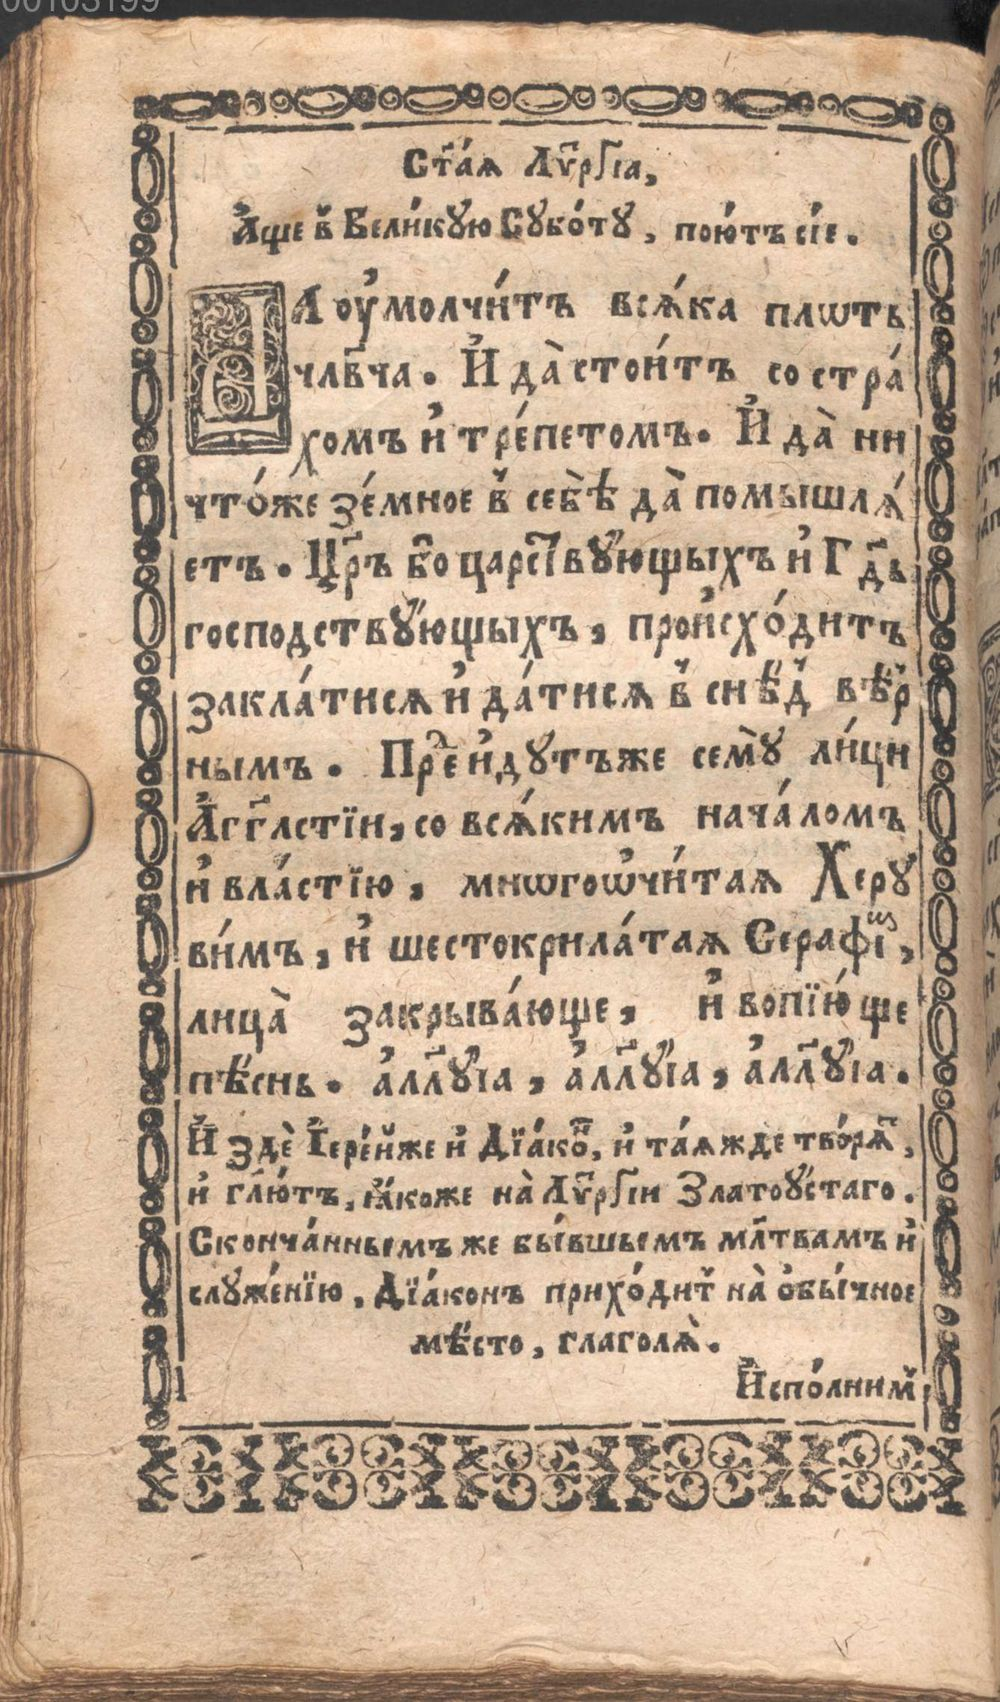 00103199
Ст҃а́ѧ Лѵ҃ргїа,
А҆ще в̾ Вели́кꙋю Сꙋбо́тꙋ, пою́тъ сїе.
ДА оу҆молчи́тъ всѧ́ка плѡть
члв҃ча. И҆ да̀ стои́тъ со стра́
хомъ и҆ тре́петомъ. И҆ да̀ ни
что́же зе́мное в̾ себѣ̀ да̀ помышлѧ́
етъ. Цр҃ъ бо царствꙋ́ющыхъ и҆ Гдⷭ҇ь
господствꙋ́ющыхъ, прои҆схо́дитъ
закла́тисѧ и҆ да́тисѧ в̾ снѣ́д̾ вѣ́р̾
нымъ. Прⷣеи҆дꙋтъже семꙋ̀ ли́ци
А҆гг҃лстїи, со всѧ́кимъ нача́ломъ
и҆ вла́стїю, мнѡгоѡ҆чи́таѧ Херꙋ
ви́мъ, и҆ шестокрила́таѧ Серафїⷨ,
лица̀ закрыва́юще, и҆ вопїю́ще
пѣ́снь. а҆лл҃ꙋ́їа, а҆лл҃ꙋ́їа, а҆лл҃ꙋ́їа.
И҆ здѐ І҆ере́йже и҆ Дїа́коⷩ, и҆ та́ѧждѐ тво́рѧⷮ,
и҆ гл҃ю́тъ, ꙗ҆́коже на̀ Лѵ҃ргїи Златоꙋ́стаго.
Сконча́нньемъ же бы́вшьемъ мл҃твамъ и҆
слꙋже́нїю, Дїа́конъ прихо́дит̾ на̀ ѻ҆бы́чное
мѣ́сто, глаголѧ̀.
И҆спо́лним̾